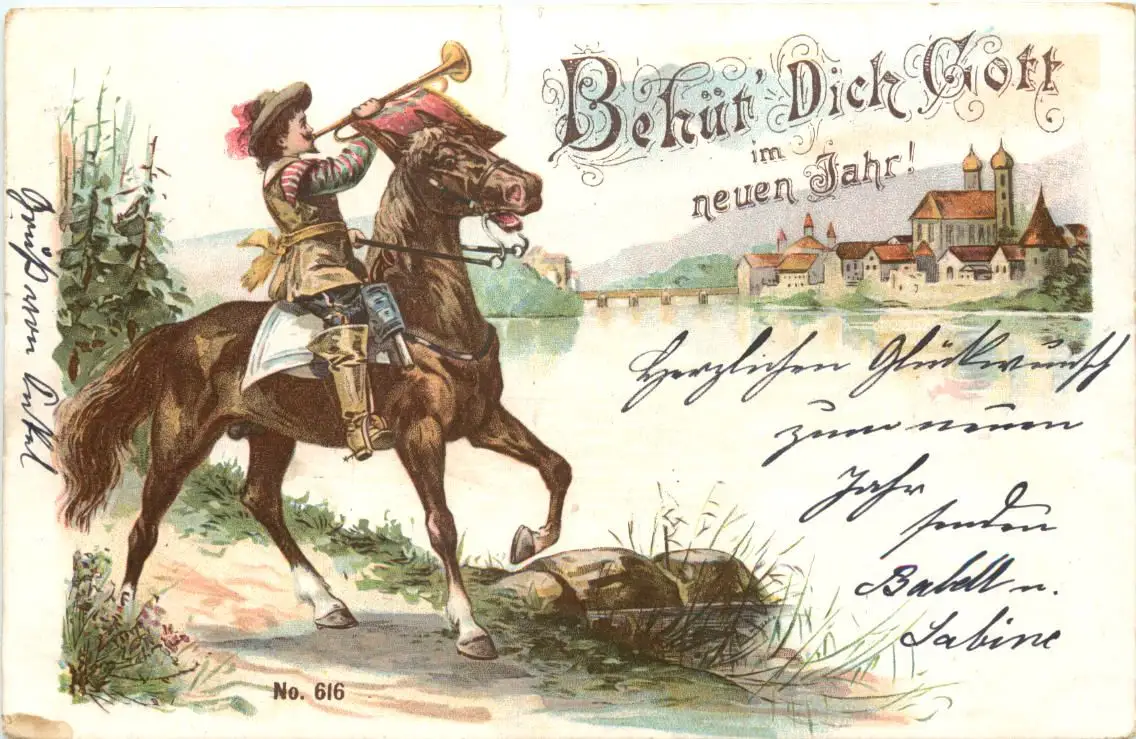 Behüt' Dich Gott
im
neuen Jahr!
Herzlichen Glückwunsch
zum neuen
Jahr
senden
Babett u.
Sabine
Gruß vom Onkel
No. 616